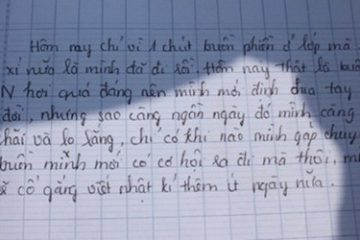 Hôm nay chỉ vì 1 chút buồn phiền ở lớp mà
xí nữa là mình đã đi rồi. Hôm nay thật là
N hơi quá đáng nên mình mới định đưa tay
đời, nhưng sao càng ngần ngày đó mình càng
hãi và lo lắng, chỉ có khi nào mình gặp chuy
buồn mình mới có cơ hội ra đi mà thôi, m
cố gắng viết nhật kí thêm ít ngày nữa.